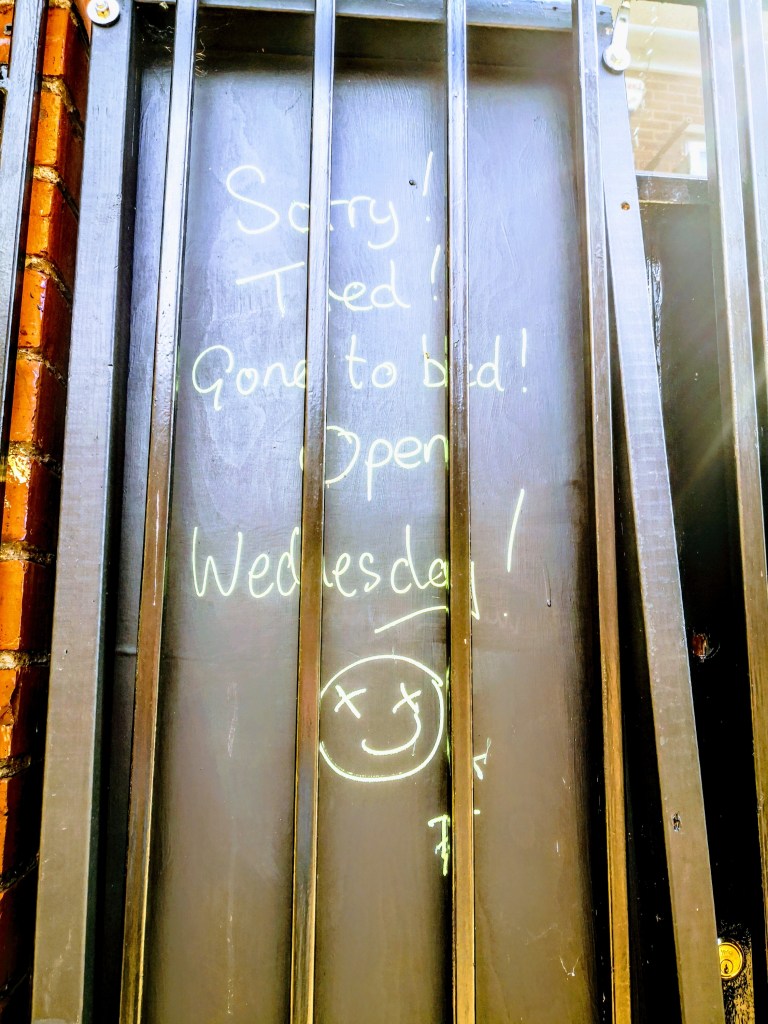 Sorry!
Tired!
Gone to bed!
Open
Wednesday!